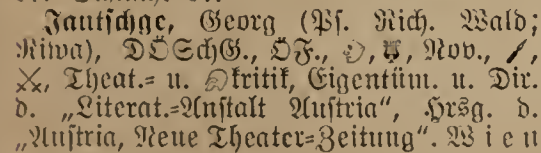 Jautschge, Georg (Ps. Rich. Wald;
Riwa), DÖSchG., ÖJ., Nov.,
Theat.= u. kritik, Eigentüm. u. Dir.
d. „Literat.=Anstalt Austria“, Hrsg. d.
„Austria, Neue Theater=Zeitung“. Wien